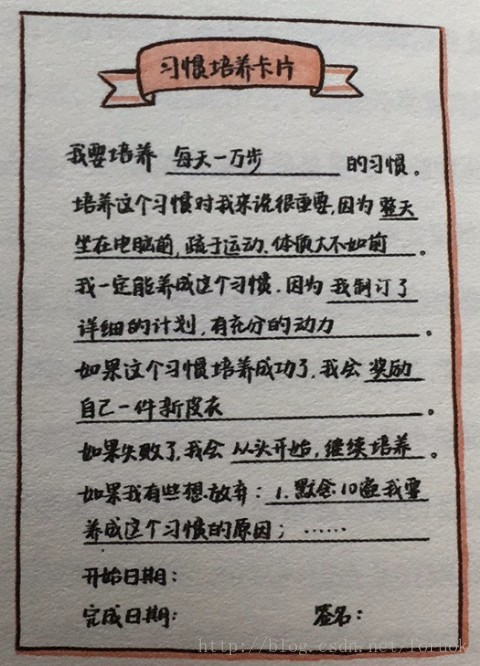 习惯培养卡片
我要培养 每天一万步 的习惯。
培养这个习惯对我来说很重要,因为 整天
坐在电脑前,疏于运动.体质大不如前。
我一定能养成这个习惯.因为 我制订了
详细的计划,有充分的动力。
如果这个习惯培养成功了,我会 奖励
自己一件新皮衣。
如果失败了,我会 从头开始,继续培养。
如果我有些想放弃:1.默念10遍我要
养成这个习惯的原因;……
开始日期:
完成日期: 签名:
http://blog.csdn.net/foruok